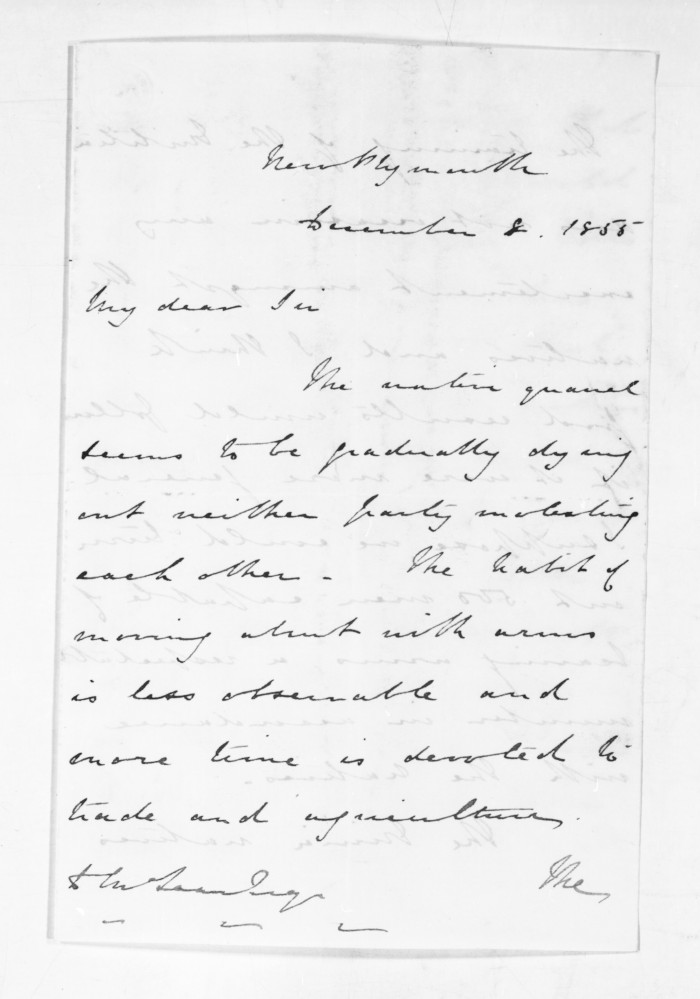 New Plymouth
December 8. 1855
My dear Sir
The native quarrel
seems to be gradually dying
out neither party molesting
each other - The habit of
moving about with arms
is less observable and
more time is devoted to
trade and agriculture.
D McLean Esqr
The